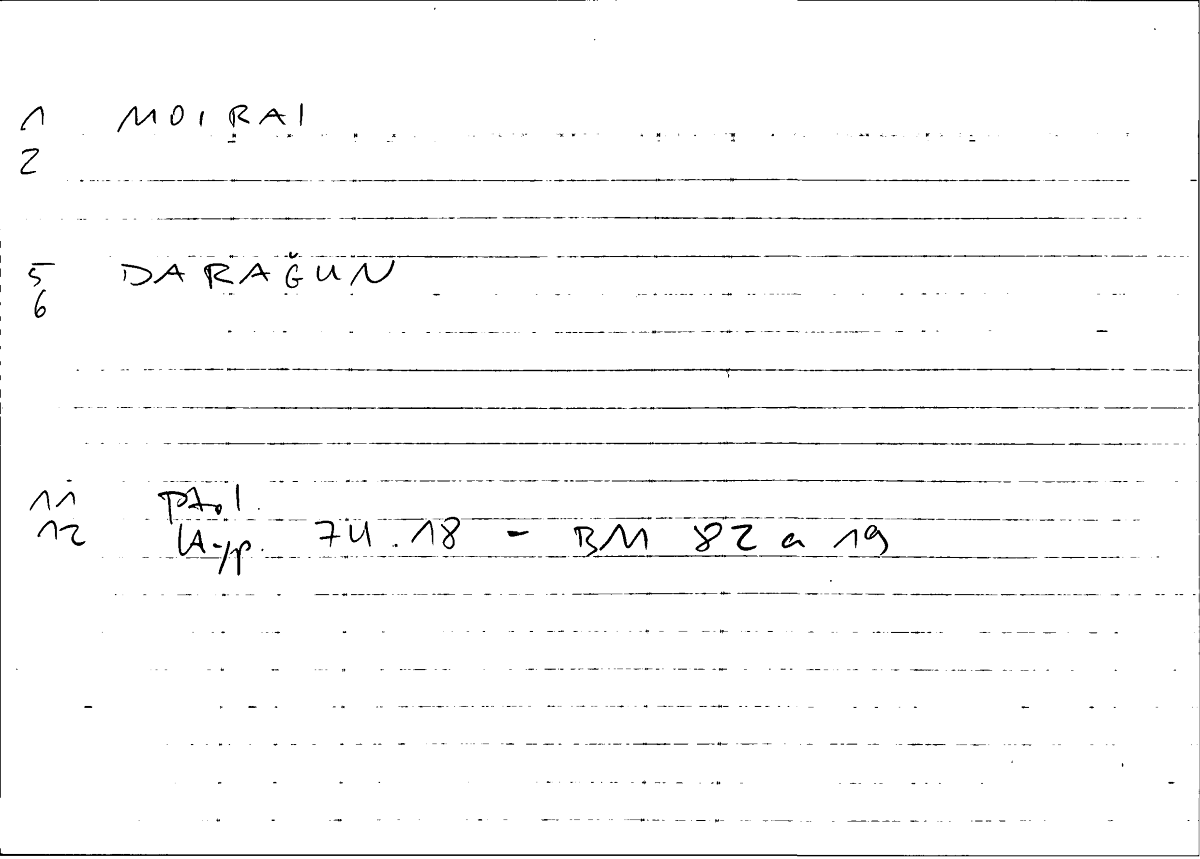 1 MOIRAI
2
5 DARAĞUN
6
11 Ptol.
12 74.18 - BM 82 a 19